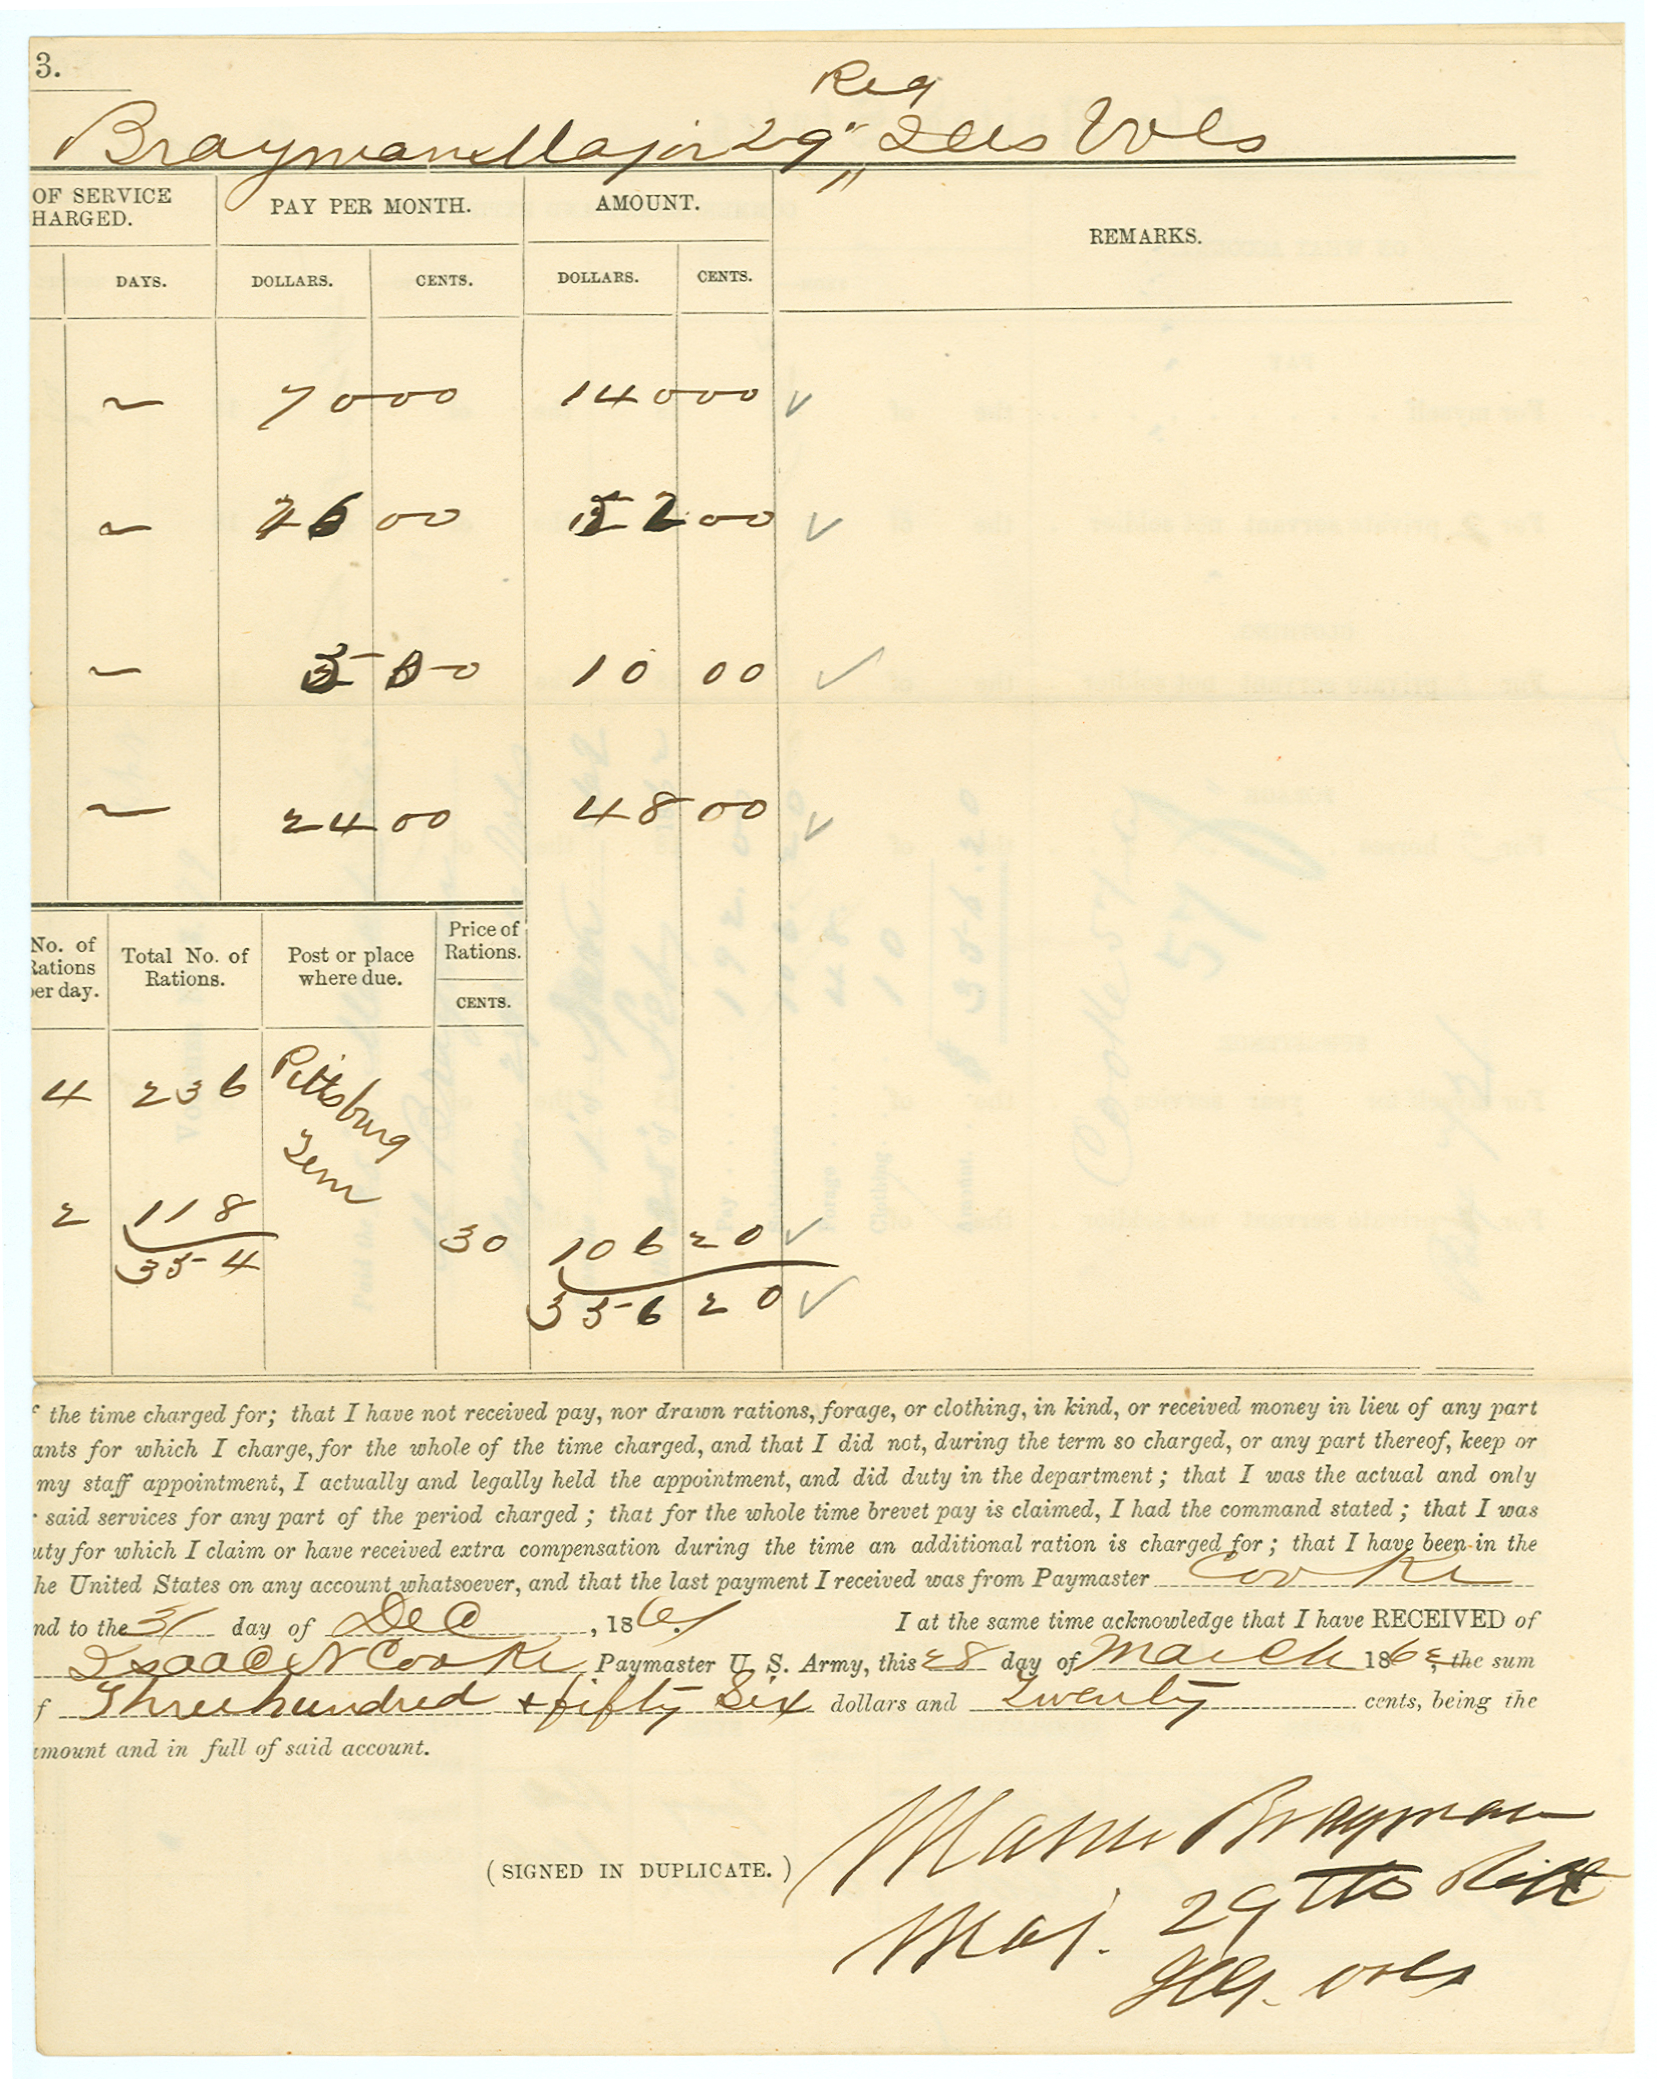 3.
Reg
Brayman Major 29" Ills Vols
OF SERVICE
HARGED.
PAY PER MONTH.
AMOUNT.
REMARKS.
DAYS.
DOLLARS.
CENTS.
DOLLARS.
CENTS.
~ 70 00 140 00 ✓
~ 26 00 52 00 ✓
~ 5 00 10 00 ✓
~ 24 00 48 00 ✓
No. of
Rations
per day.
Total No. of
Rations.
Post or place
where due.
Price of
Rations.
CENTS.
4 236 Pittsburg
Tenn
2 118 30 106 20 ✓
354
356 20 ✓
f the time charged for; that I have not received pay, nor drawn rations, forage, or clothing, in kind, or received money in lieu of any part
ants for which I charge, for the whole of the time charged, and that I did not, during the term so charged, or any part thereof, keep or
my staff appointment, I actually and legally held the appointment, and did duty in the department; that I was the actual and only
r said services for any part of the period charged; that for the whole time brevet pay is claimed, I had the command stated; that I was
uty for which I claim or have received extra compensation during the time an additional ration is charged for; that I have been in the
he United States on any account whatsoever, and that the last payment I received was from Paymaster Cooke
nd to the 31 day of Dec, 1861. I at the same time acknowledge that I have RECEIVED of
Isaac N Cooke, Paymaster U. S. Army, this 28 day of March 1862, the sum
f Three hundred + fifty Six dollars and Twenty cents, being the
amount and in full of said account.
(SIGNED IN DUPLICATE.)
Mason Brayman
Maj. 29th
Ill. vols